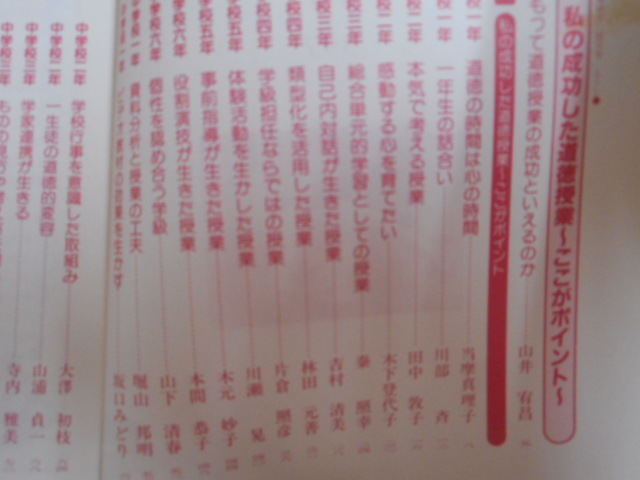 私の成功した道徳授業〜ここがポイント〜
もって道徳授業の成功といえるのか 山井 宥昌
私の成功した道徳授業〜ここがポイント
校一年 道徳の時間は心の時間 当摩真理子
校一年 一年生の話合い 川部 斉
校二年 本気で考える授業 田中 敦子
校二年 感動する心を育てたい 木下登代子
校三年 総合単元的学習としての授業 秦 照幸
校三年 自己内対話が生きた授業 吉村 清美
校四年 類型化を活用した授業 林田 元善
校四年 学級担任ならではの授業 片倉 照彦
校五年 体験活動を生かした授業 川瀬 晃
校五年 事前指導が生きた授業 木元 妙子
学校六年 役割演技が生きた授業 本間 恭子
学校六年 個性を認め合う学級 山下 清春
資料分析と授業の工夫 堀山 邦明
坂口みどり
中学校二年 学校行事を意識した取組み 大澤 初枝
中学校二年 一生徒の道徳的変容 山浦 貞一
中学校三年 学家連携が生きる 寺内 雅美
中学校三年